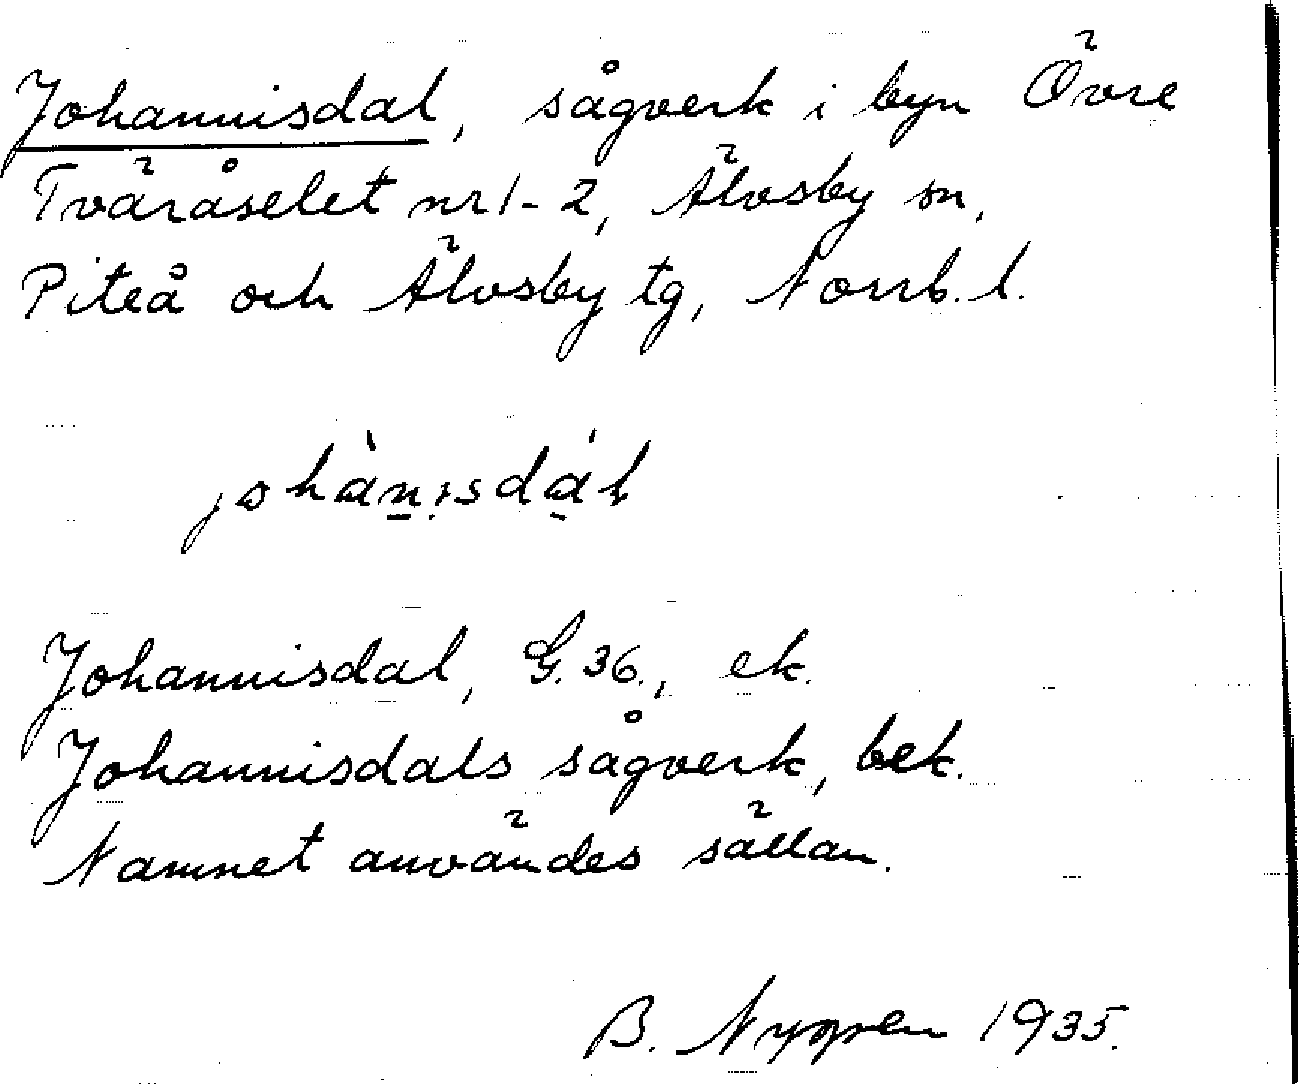 Johannisdal, sågverk i byn Övre
Tväråselet nr 1-2, Älvsby sn,
Piteå och Älvsby tg, Norrb. l.
johànisdál
Johannisdal, G. 36., ek.
Johannisdals sågverk, bek.
Namnet användes sällan.
B. Nygren 1935.